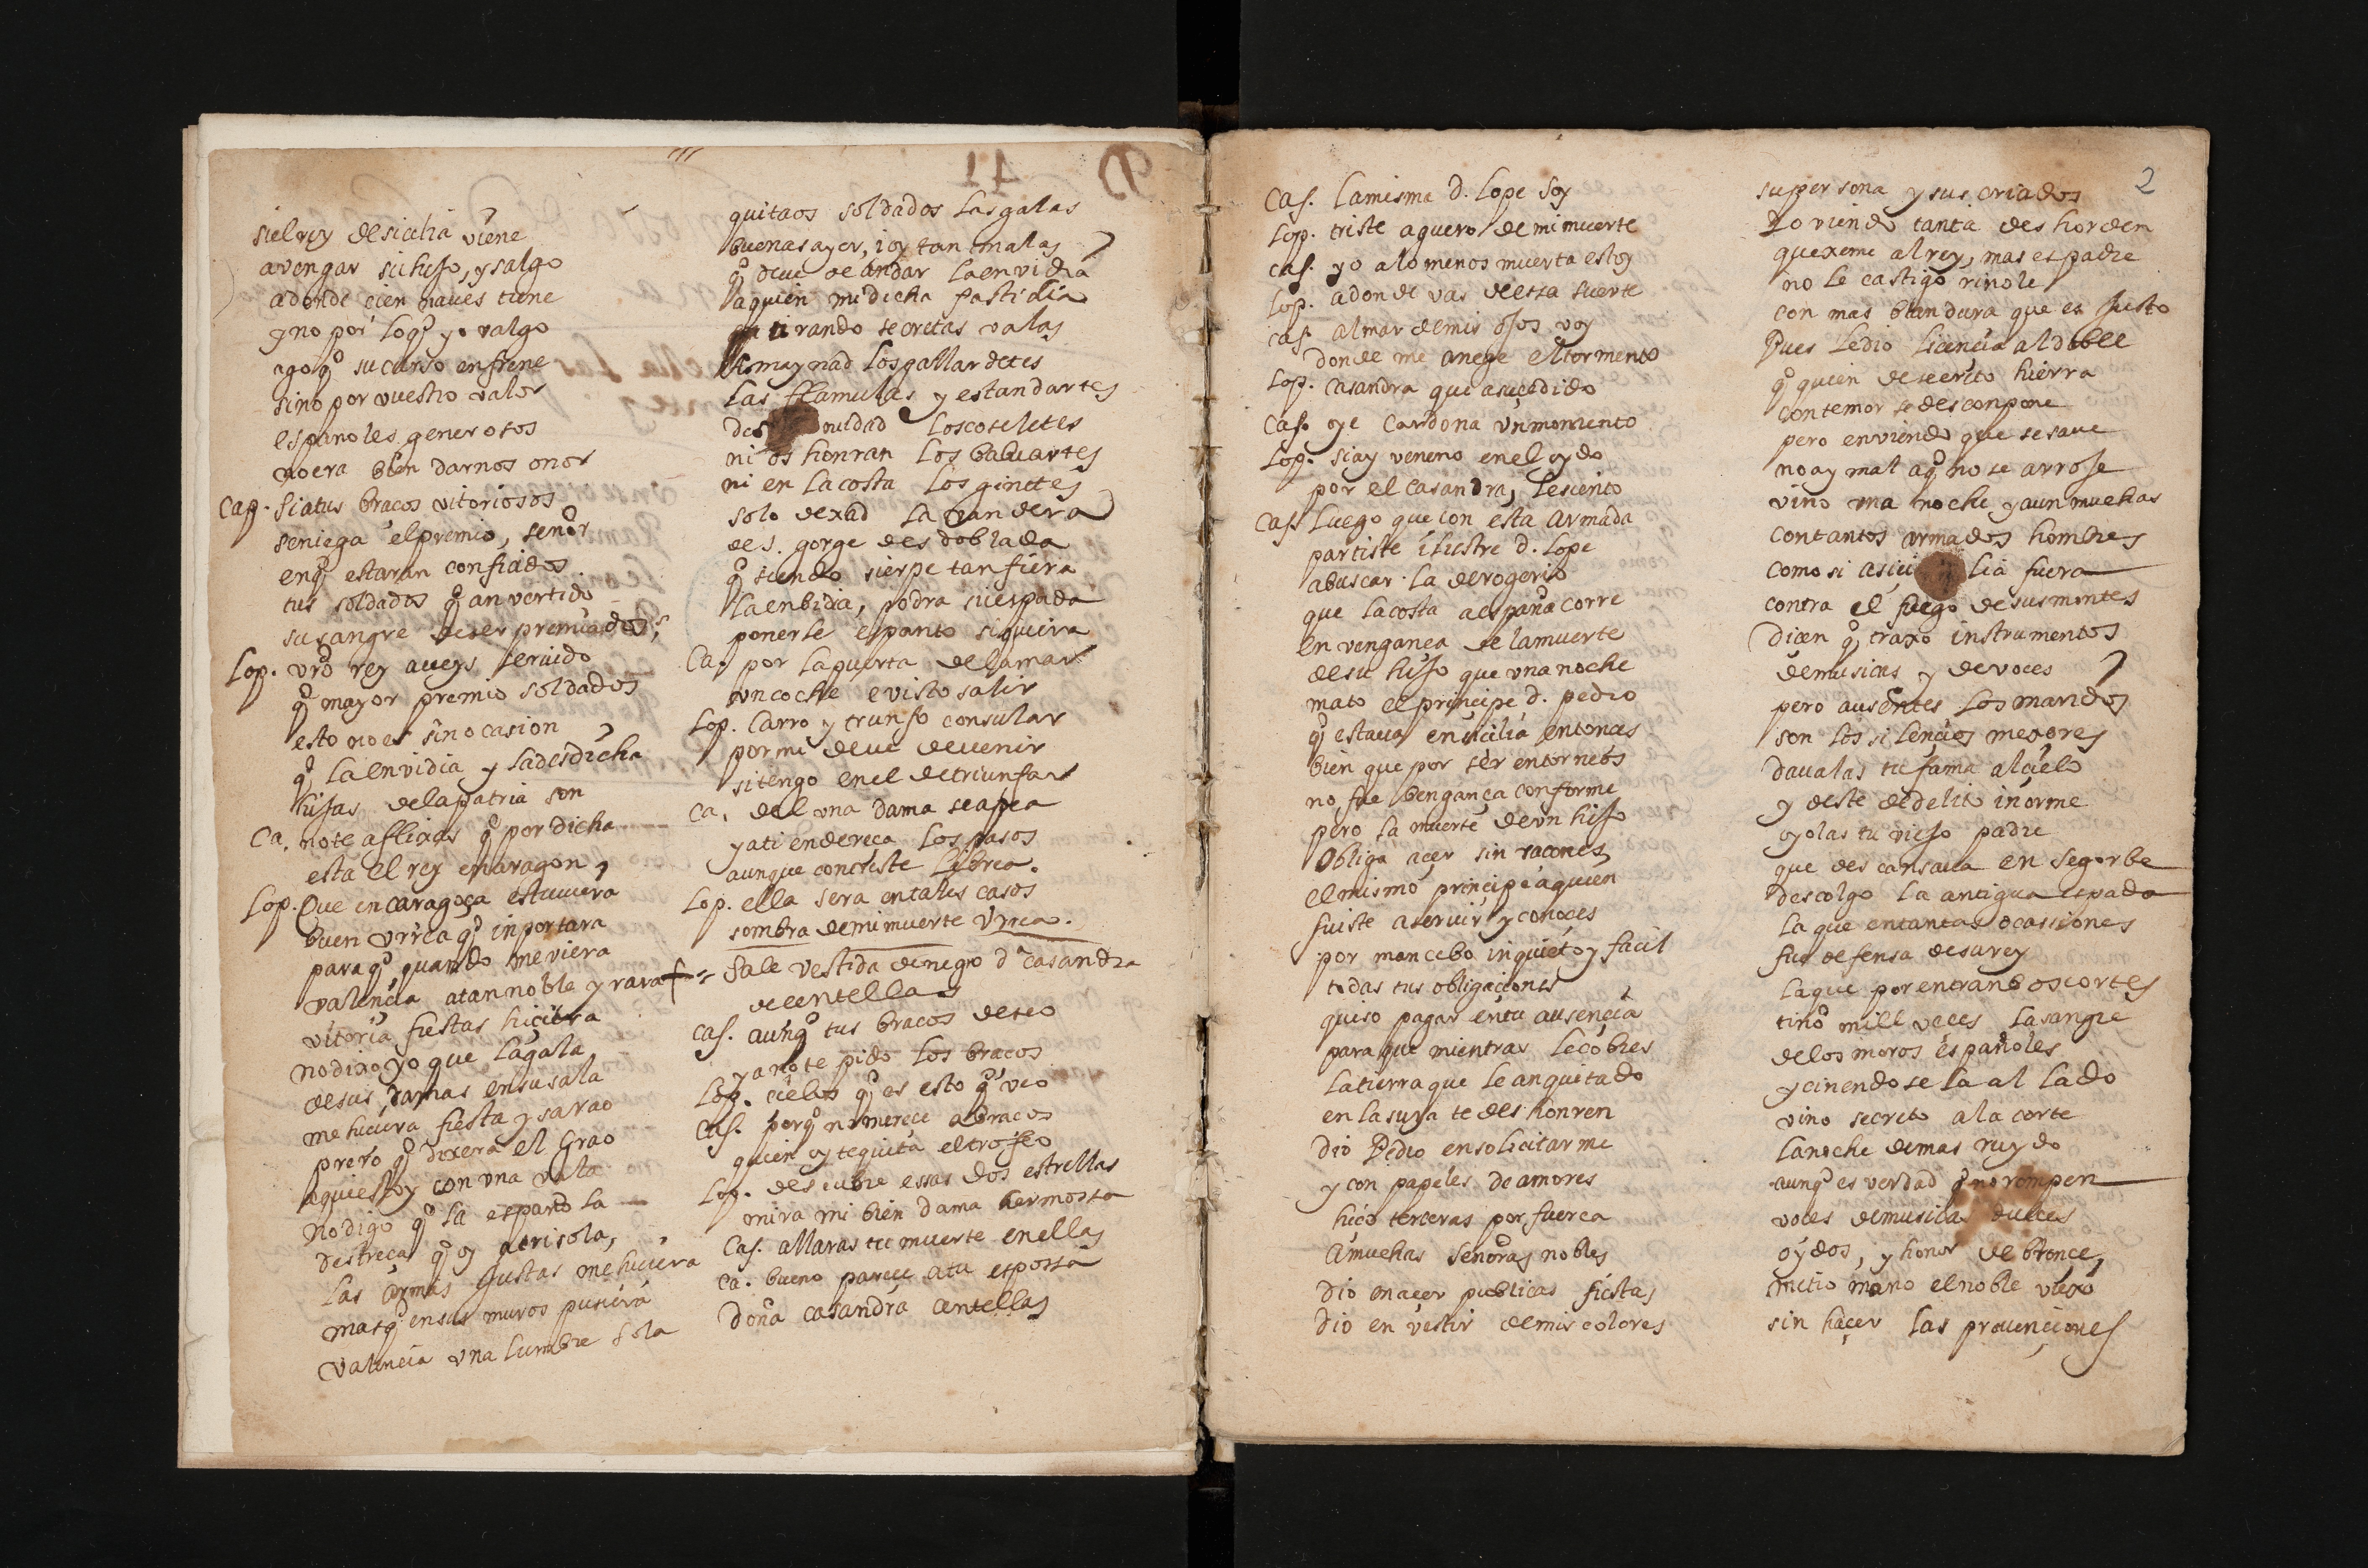 si el rey de sicilia viene
a vengar su hijo, y salgo
a donde cien naues tiene
y no por loq̃ yo valgo
ago q̃ su curso enfrene
sino por vuestro valor
españoles generosos
no era bien darnos onor
Cap. Si a tus braços vitoriosos
se niega el premio, señor
enq̃ estaran confiados
tus soldados q̃ an vertido
su sangre de ser premiados
Lop. vr̃o rey aueys seruido
q̃ mayor premio soldados
esto no es sino casion
q̃ la envidia y la desdicha
hijas de la patria son
Ca. no te aflixas q̃ por dicha
esta el rey en aragon
Lop. Que en caragoça estuuiera
buen vrrea q̃ inportara
paraq̃ quando me viera
valencia a tan noble y rara
vitoria fiestas hiciera
no dixo yo que la gala
de sus damas en su sala
me hiciera fiesta y sarao
pero q̃ dixera el Grao
aqui estoy con vna vala
no digo q̃ la española
destreça q̃ oy acrisola,
las armas justas me hiciera
mas q̃ en sus muros pusiera
valencia vna lumbre sola
quitaos soldados las galas
buenas ayer, i oy tan malas
q̃ deue de andar la envidia
a quien mi dicha fastidia
tirando secretas valas
Amaynad los gallardetes
las flamulas y estandartes
des nudad los coseletes
ni os honran los baluartes
ni en la costa los ginetes
solo dexad la vandera
de s. gorge desdoblada
q̃ siendo sierpe tan fiera
la enbidia, podra su espada
ponerle espanto siquiera
Ca. por la puerta de la mar
vn coche e visto salir
Lop. Carro y triunfo consular
por mi deue de venir
si tengo en el de triunfar
Ca. del vna dama se apea
y a ti endereça los pasos
aunque con triste librea.
Lop. ella sera en tales casos
sombra de mi muerte Vrrea.
Sale vestida de negro dª casandra
de centellas
Cas. aunq̃ tus braços deseo
ya no te pido los braços
Lop. cielos q̃ es esto q̃ veo
Cas. porq̃ no merece abraços
quien oy te quita el trofeo
Lop. descubre essas dos estrellas
mira mi bien dama hermossa
Cas. allaras tu muerte en ellas
Ca. bueno parece a tu espossa
Doña casandra centellas
2
Cas. La misma d. Lope soy
Lop. triste aguero de mi muerte
Cas. yo a lo menos muerta estoy
Lop. a donde vas de essa suerte
Cas. al mar de mis ojos voy
donde me anege el tormento
Lop. casandra que a sucedido
Cas. oye Cardona vn momento
Lop. si ay veneno en el oydo
por el casandra, le siento
Cas. Luego que con esta armada
partiste ilustre d. Lope
a buscar la de rogerio
que la costa a españa corre
en vengança de la muerte
de su hijo que vna noche
mato el principe d. pedro
q̃ estaua en sicilia entonces
bien que por ser en torneos
no fue bengança conforme
pero la muerte de vn hijo
obliga açer sin raçones
el mismo principe a quien
fuiste a seruir y conoces
por mancebo inquieto y facil
todas tus obligaciones
quiso pagar en tu ausencia
para que mientras le cobres
la tierra que le an quitado
en la suya te deshonren
Dio Pedro en solicitarme
y con papeles de amores
hiço terceras por fuerça
a muchas señoras nobles
Dio en açer publicas fiestas
Dio en vestir de mis colores
su persona y sus criados
Yo viendo tanta deshorden
quexeme al rey, mas es padre
no le castigo riñole
con mas blandura que es justo
Pues le dio licencia al doble
q̃ quien de secreto hierra
con temor se desconpone
pero en viendo que se saue
no ay mal aq̃ no se arroje
vino vna noche y aun muchas
con tantos armados hombres
como si a sici lia fuera
contra el fuego de sus montes
Dicen q̃ traxo instrumentos
de musicas y de voces
pero ausentes los maridos
son los silencios mexores
daualas tu fama al cielo
y deste delito inorme
oyolas tu viejo padre
que descansaua en Segorbe
descolgo la antigua espada
la que en tantas ocassiones
fue defensa de su rey
la que por entranbos cortes
tiño mill veces la sangre
de los moros españoles
y ciñendose la al lado
vino secreto a la corte
la noche de mas ruydo
aunq̃ es verdad q̃ no rompen
voces de musicas dulces
oydos, y honor de bronce,
metio mano el noble viexo
sin haçer las preuenciones